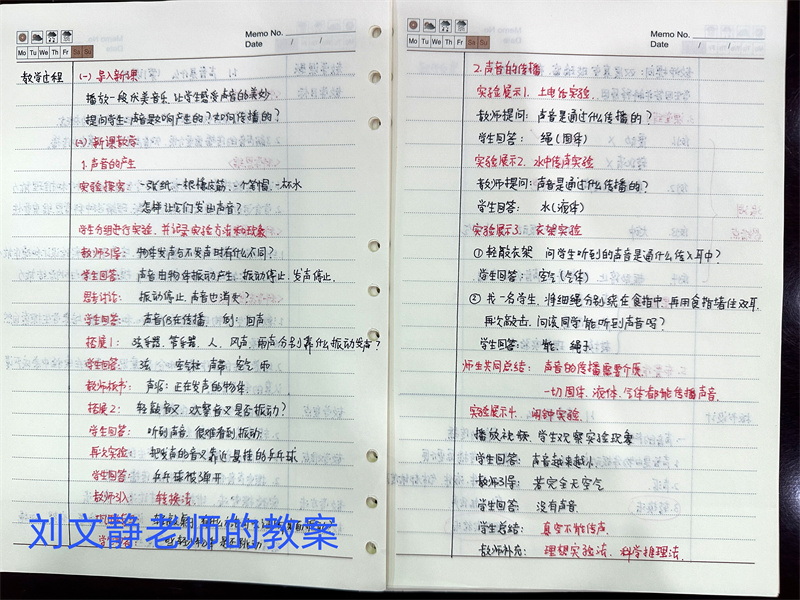 Memo No.
Mo Tu We Th Fr Sa Su
Date / /
教学过程 (一) 导入新课
播放一段优美音乐,让学生感受声音的美妙
提问学生:声音是如何产生的?如何传播的?
(二) 新课教学
1.声音的产生
实验探究:一张纸,一根橡皮筋,一个笔帽,一杯水
怎样让它们发出声音?
学生分组进行实验,并记录实验方法和现象
教师引导:物体发声与不发声时有什么不同?
学生回答:声音由物体振动产生,振动停止,发声停止.
思考讨论:振动停止,声音也消失?
学生回答:声音仍在传播. 例:回声
拓展1:弦乐器,管乐器,人,风声,雨声分别靠什么振动发声?
学生回答:弦 空气柱 声带 空气 雨
教师板书:声源:正在发声的物体
拓展2:轻敲音叉,观察音叉是否振动?
学生回答:听到声音,很难看到振动
再次实验:把发声的音叉靠近悬挂的乒乓球
学生回答:乒乓球被弹开
教师引入 转换法
刘文静老师的教案
Memo No.
Mo Tu We Th Fr Sa Su
Date / /
2.声音的传播
实验展示1.土电话实验.
教师提问:声音是通过什么传播的?
学生回答:绳(固体)
实验展示2.水中传声实验
教师提问:声音是通过什么传播的?
学生回答:水(液体)
实验展示3.衣架实验
①轻敲衣架 问学生听到的声音是通什么传入耳中?
学生回答:空气(气体)
②找一名学生,将细绳分别绕在食指中,再用食指堵住双耳.
再次敲击.问该同学能听到声音吗?
学生回答:能.绳子
师生共同总结:声音的传播需要介质
一切固体、液体、气体都能传播声音.
实验展示4.闹钟实验.
播放视频,学生观察实验现象
学生回答:声音越来越小
教师引导:若完全无空气
学生回答:没有声音.
学生总结:真空不能传声.
教师补充:理想实验法、科学推理法.